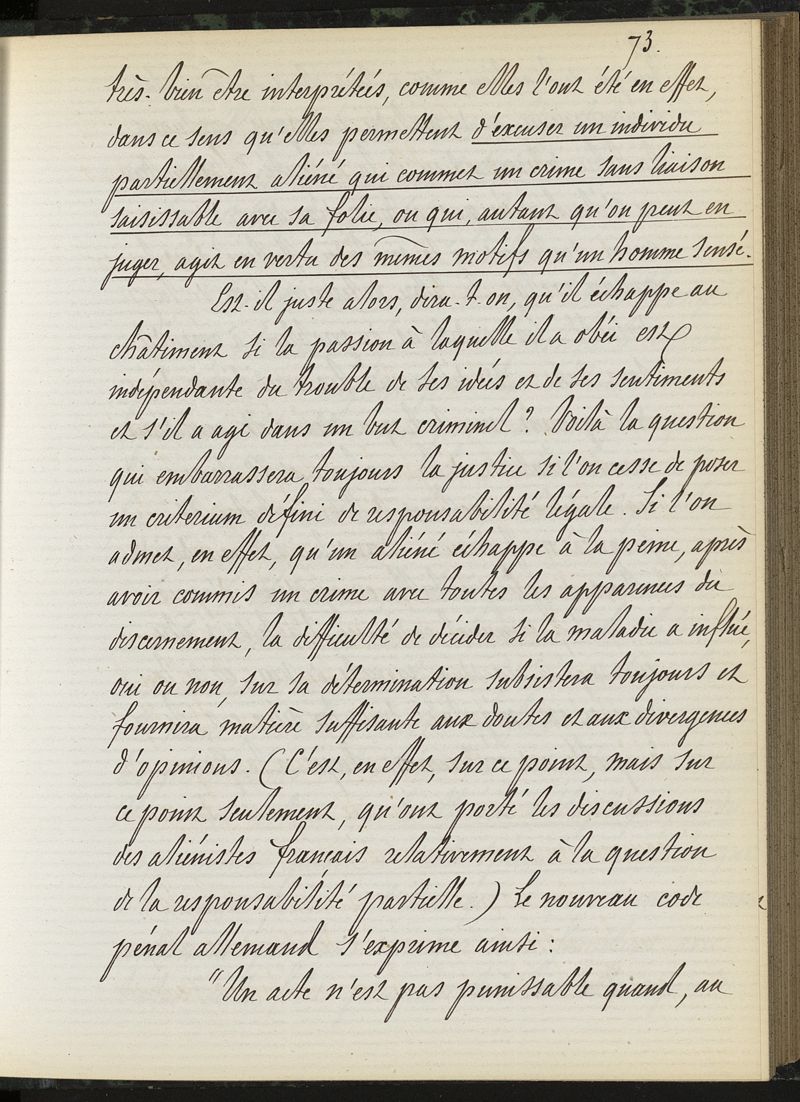 73.
très-bien être interprétées, comme elles l'ont été en effet,
dans ce sens qu'elles permettent d'excuser un individu
partiellement aliéné qui commet un crime sans liaison
saisissable avec sa folie, ou qui, autant qu'on peut en
juger, agit en vertu des mêmes motifs qu'un homme sensé.
Est-il juste alors, dira-t-on, qu'il échappe au
châtiment si la passion à laquelle il a obéi est
indépendante du trouble de ses idées et de ses sentiments
et s'il a agi dans un but criminel ? Voilà la question
qui embarrassera toujours la justice si l'on cesse de poser
un criterium défini de responsabilité légale. Si l'on
admet, en effet, qu'un aliéné échappe à la peine, après
avoir commis un crime avec toutes les apparences du
discernement, la difficulté de décider si la maladie a influé,
oui ou non, sur sa détermination subsistera toujours et
fournira matière suffisante aux doutes et aux divergences
d'opinions. (C'est, en effet, sur ce point, mais sur
ce point seulement, qu'ont porté les discussions
des aliénistes français relativement à la question
de la responsabilité partielle.) Le nouveau code
pénal allemand s'exprime ainsi :
"Un acte n'est pas punissable quand, au